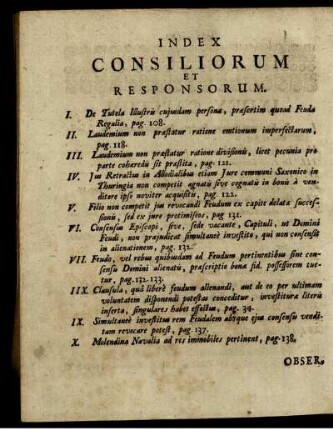 INDEX
CONSILIORUM
ET
RESPONSORUM.
I. De Tutela Illustris cujusdam personæ, præsertim quoad Feuda
Regalia, pag. 108.
II. Laudemium non præstatur ratione emtionum imperfectarum,
pag. 118.
III. Laudemium non præstatur ratione divisionis, licet pecunia pro
parte coheredis sit præstita, pag. 121.
IV. Jus Retractus in Allodialibus etiam Jure communi Saxonico in
Thuringia non competit agnatis sive cognatis in bonis à ven-
ditore ipso noviter acquisitis, pag. 122.
V. Filio non competit jus revocandi Feudum ex capite delatæ succes-
sionis, sed ex jure protimiseos, pag 131.
VI. Consensus Episcopi, sive, sede vacante, Capituli, ut Domini
Feudi, non præjudicat simultaneè investito, qui non consensit
in alienationem, pag. 132.
VII. Feuda, vel rebus quibusdam ad Feudum pertinentibus sine con-
sensu Domini alienatis, præscriptio bonæ fid. possessorem tue-
tur, pag. 132. 133.
IIX. Clausula, quâ liberè feudum alienandi, aut de eo per ultimam
voluntatem disponendi potestas conceditur, investituræ literis
inserta, singulares habet effectus, pag. 34.
IX. Simultaneè investitus rem Feudalem absque ejus consensu vendi-
tam revocare potest, pag. 137.
X. Molendina Navalia ad res immobiles pertinent, pag. 138.
OBSER.